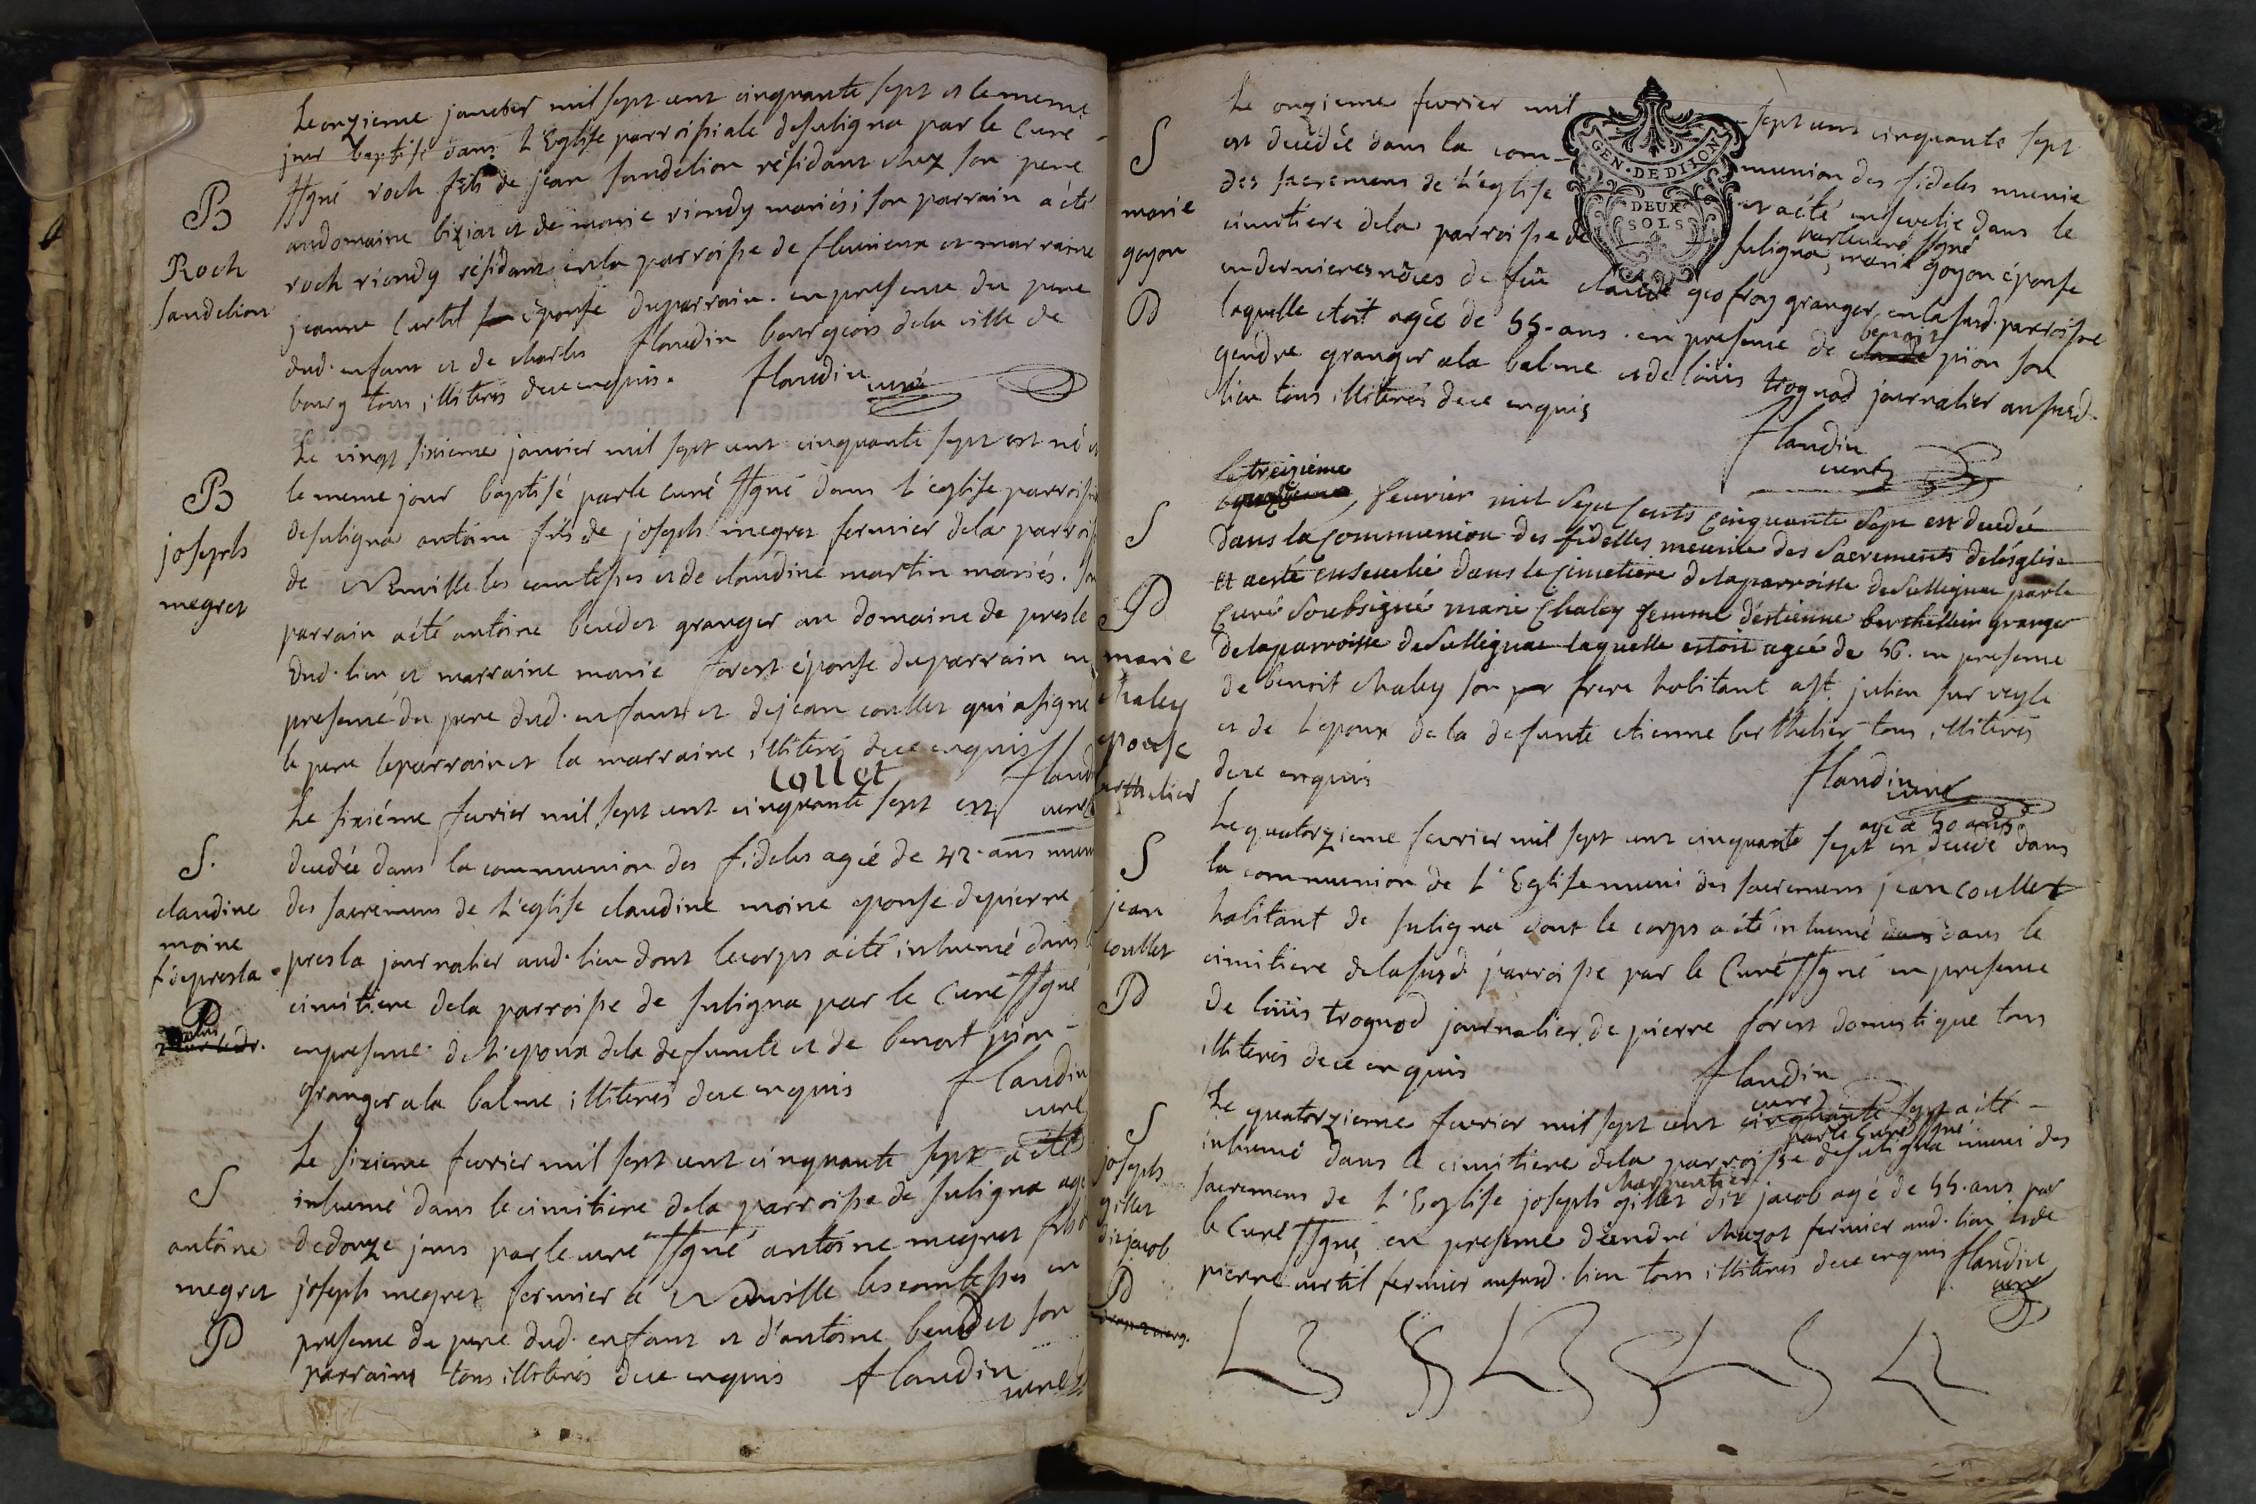 Le onzieme janvier mil sept cent cinquante sept et le meme
jour baptisé dans L'Eglise parroissiale de suligna par le Curé
ssgné roch fils de jean sandelion résidant chez son pere
au domaine et de marie riondy mariés; son parrain a été
roch riondy résidant en la parroisse de fleurieux et marraine
jeanne Curtil épouse du parrain. en presence du pere
dud. enfant et de charles flandin bourgeois de la ville de
bourg tous illiterés de ce enquis. flandin curé
B
Roch
sandelion
Le vingt sixieme janvier mil sept cent cinquante sept est né et
le meme jour baptisé par le curé ssgné dans L'eglise parroissi
de suligna antoine fils de joseph megret fermier de la parroiss
de Neuville les comtesses et de claudine martin mariés. son
parrain a été antoine beudet granger au domaine de presle
dud. lieu et marraine marie forest épouse du parrain en
presence du pere dud. enfant et de jean coullet qui a signé
le pere le parrain et la marraine illiterés de ce enquis
Collet fland
curé
B
joseph
megret
Le sixiéme fevrier mil sept cent cinquante sept est
decedée dans la communion des fideles agée de 42. ans mun
des sacremens de L'eglise claudine moine epouse de pierre
presla journalier aud. lieu dont le corps a été inhumé dans l
cimitiere de la parroisse de suligna par le Curé ssgné
en presence de L'epoux de la defunte et de benoit pion
granger a la balme illiterés de ce enquis flandin
curé
S.
claudine
moine
f. de presla
P
Le sixieme fevrier mil sept cent cinquante sept a été
inhumé dans le cimitiere de la parroisse de suligna agé
de douze jours par le curé ssgné antoine megret fils de
joseph megret fermier a Neuville les comtesses en
presence du pere dud. enfant et d'antoine beudet son
parrain tous illiterés de ce enquis flandin
curé
S
antoine
megret
P
Le onzieme fevrier mil sept cent cinquante sept
est decedée dans la communion des fideles munie
des sacremens de L'eglise et a été ensevelie dans le
GEN. DE DIJON
DEUX
SOLS
par le curé ssgné
cimitiere de la parroisse de suligna, marie goyon épouse
en dernieres nôces de feu claude geofroy granger en la susd. parroisse
laquelle etoit agée de 55. ans. en presence de claude benoit pion son
gendre granger a la balme et de louis trognod journalier au susd.
lieu tous illiterés de ce enquis flandin
curé
S
marie
goyon
P
le treizième
fevrier mil sept cents cinquante sept est decedée
dans la communion des fidelles meunie des sacrements de l'église
et a esté ensevelie dans le cimetiere de la parroisse de sulligna par le
Curé soubsigné marie Chaley femme d'estienne berthellier granger
de la parroisse de sulligna laquelle estoit agée de 56. en presence
de benoit chaley son frere habitant a st. julien sur veyle
et de L'epoux de la defunte etienne berthelier tous illiterés
de ce enquis flandin
curé
S
P
marie
chaley
epouse
berthelier
Le quatorzieme fevrier mil sept cent cinquante sept est decedé agé de 50 ans dans
la communion de L'Eglise muni des sacremens jean coullet
habitant de suligna dont le corps a été inhumé dans dans le
cimitiere de la susd. parroisse par le Curé ssgné en presence
de louis trognod journalier, de pierre forest domestique tous
illiterés de ce enquis flandin
curé
S
jean
coullet
P
Le quatorzieme fevrier mil sept cent cinquante sept a été
par le Curé ssgné
inhumé dans le cimitiere de la parroisse de suligna muni des
charpentier
sacremens de L'Eglise joseph gillet dit jacob agé de 55. ans par
le Curé ssgné, en presence d'andré chuzot fermier aud. lieu et de
pierre curtil fermier au susd. lieu tous illiterés de ce enquis flandin
curé
S
joseph
gillet
dit jacob
P